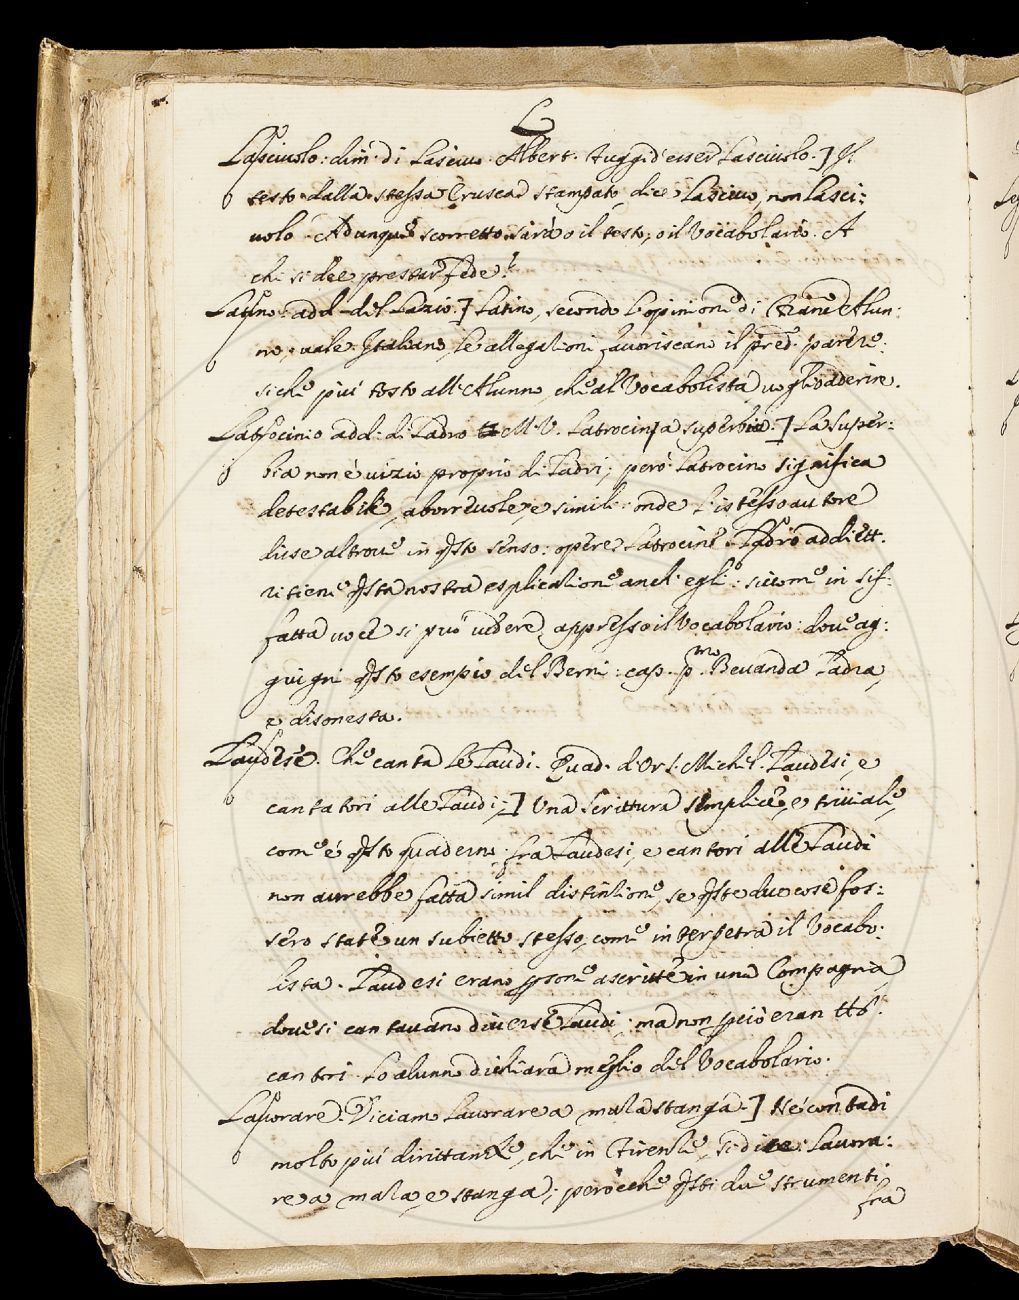 L
Lascivolo: dim. di Lascivo. Albert. fuggi d'esser Lascivolo.] Il
testo dalla stessa Crusca stampato, dice Lascivo, non Lasci=
volo. Adunque scorretto sarà o il testo, o il Vocabolario. A
chi si dee prestar fede?
Latino: add. del Lazio.] Latino, secondo l'opinione di Alun=
no, vale Italiano, le allegazioni favoriscano il pred. parere:
siche più tosto all'Alunno, che al Vocabolista voglio aderire.
Latrocinio add. di Ladro M.V. Latrocinia superbia.] La super=
bia non è vizio proprio di Ladri; però Latrocino significa
detestabile, aborrevole, e simili: onde l'istesso autore
disse altrove in qsto senso: opere Latrocine. Ladro addiett.
ritiene qsta nostra esplicazione anch'egli: siccome in sif=
fatta voce si può vedere appresso il Vocabolario: dove ag=
giugni qsto esempio del Berni: cap. pmo. Bevanda Ladra,
e disonesta.
Laudese. Che canta le Laudi. Quad. d'Or S. Michel. Laudesi, e
cantatori alle Laudi;] Una scrittura semplice, e triviale,
come è qsto quaderno, fra Laudesi, e cantori alle Laudi
non avrebbe fatta simil distinzione, se qste due cose fos=
sero state un subietto stesso, come interpetra il Vocabo=
lista. Laudesi erano psone ascritte in una Compagnia
dove si cantavano diverse Laudi; ma non pciò eran tti
cantori. Lo alunno dichiara meglio del Vocabolario.
Lavorare. Diciam Lavorare a mala stanga.] Ne' contadi
molto più dirittamte, che in Firenze, si dice: Lavora=
re a mala, e stanga; perocche qsti due strumenti
fra